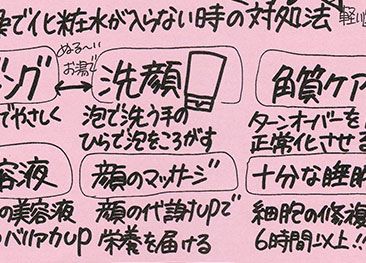 で化粧水が入らない時の対処法
ぬる〜い
お湯で
ング ↔ 洗顔 角質ケア
でやさしく 泡で洗う手の ターンオーバーを
ひらで泡をころがす 正常化させる
容液 顔のマッサージ 十分な睡眠
の美容液 顔の代謝upで 細胞の修復
バリアカup 栄養を届ける 6時間以上!!